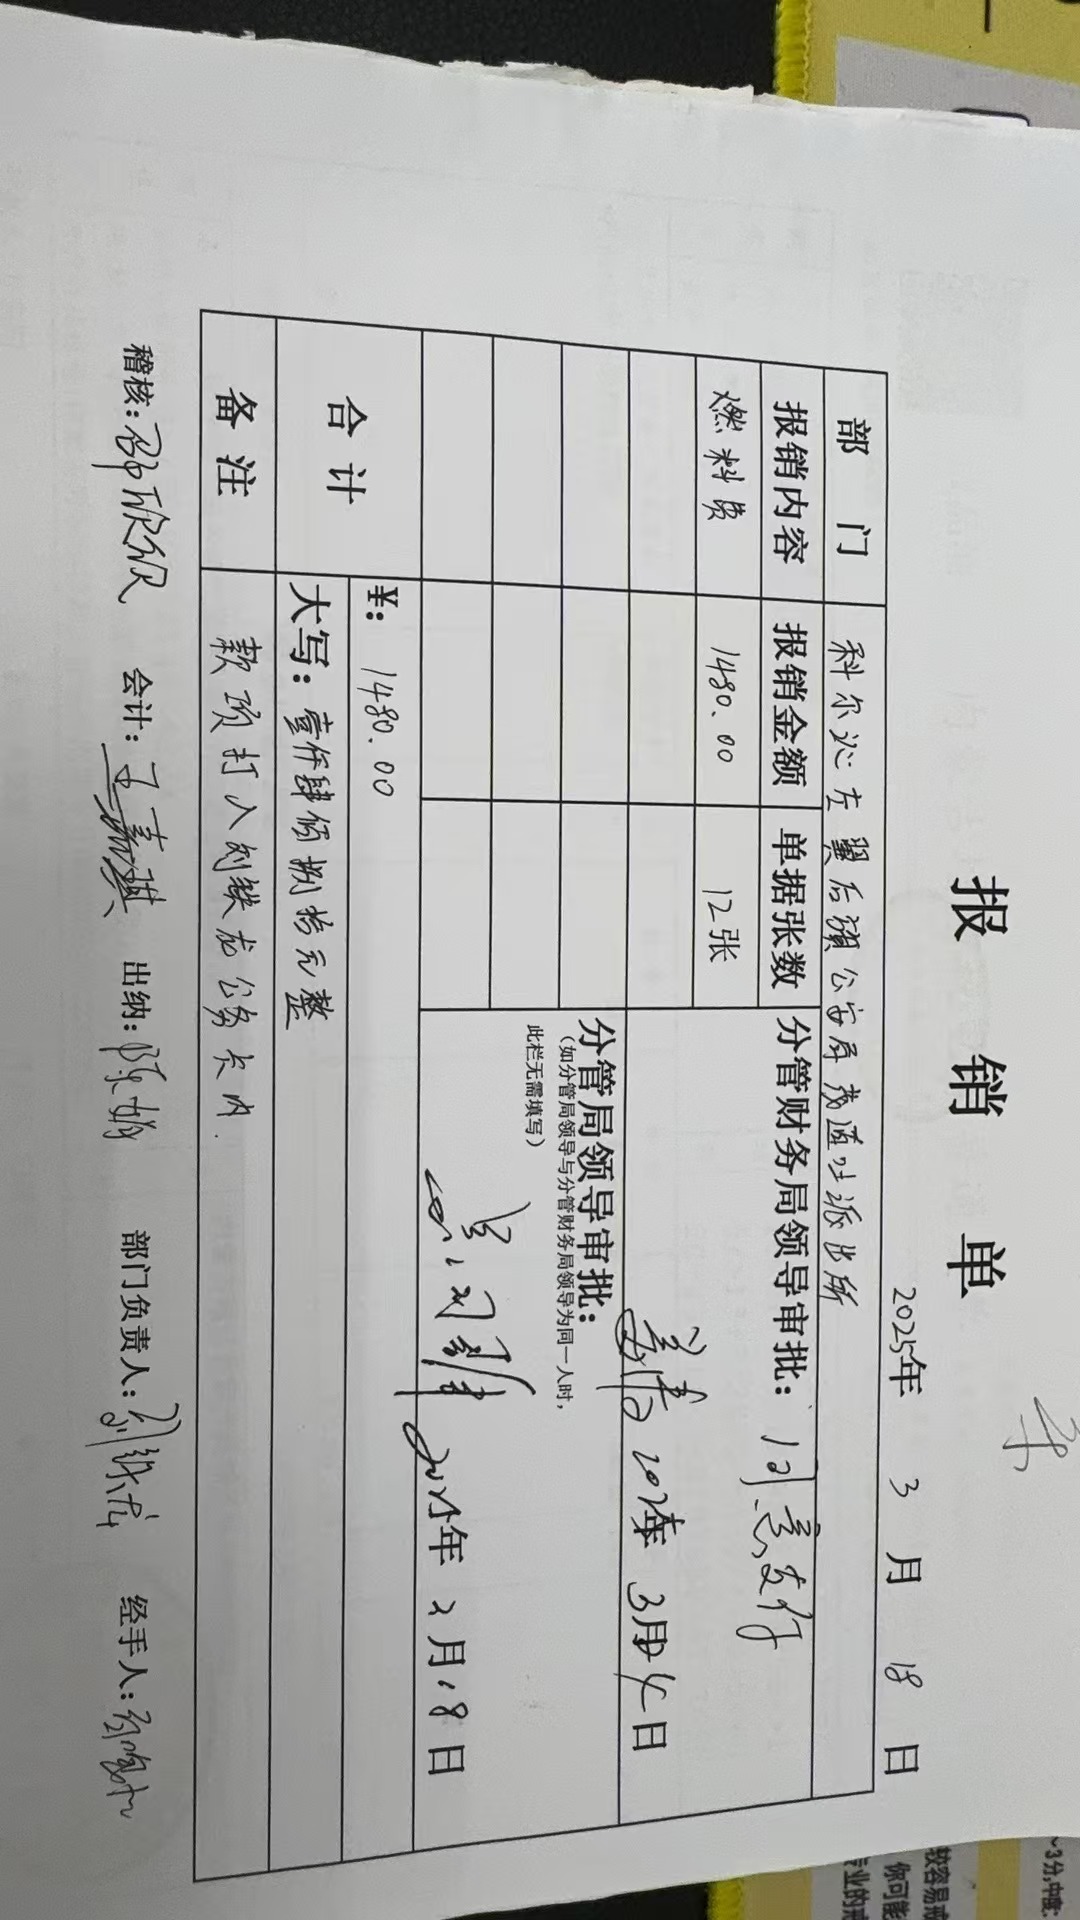 报销单
2025年 3 月 18 日
部 门 科尔沁左翼后旗公安局茂道吐派出所
报销内容 报销金额 单据张数 分管财务局领导审批: 同意支付
燃料费 1480.00 12张
3月 日
分管局领导审批:
(如分管局领导与分管财务局领导为同一人时,
此栏无需填写)
2025年 3月18日
合 计 ¥: 1480.00
大写: 壹仟肆佰捌拾元整
备 注 款项打入刘铁龙公务卡内.
稽核: 邵欣欣 会计: 王嘉琪 出纳: 陈娟 部门负责人: 刘铁龙 经手人:
~3分,中度:
较容易戒
你可能
专业的戒